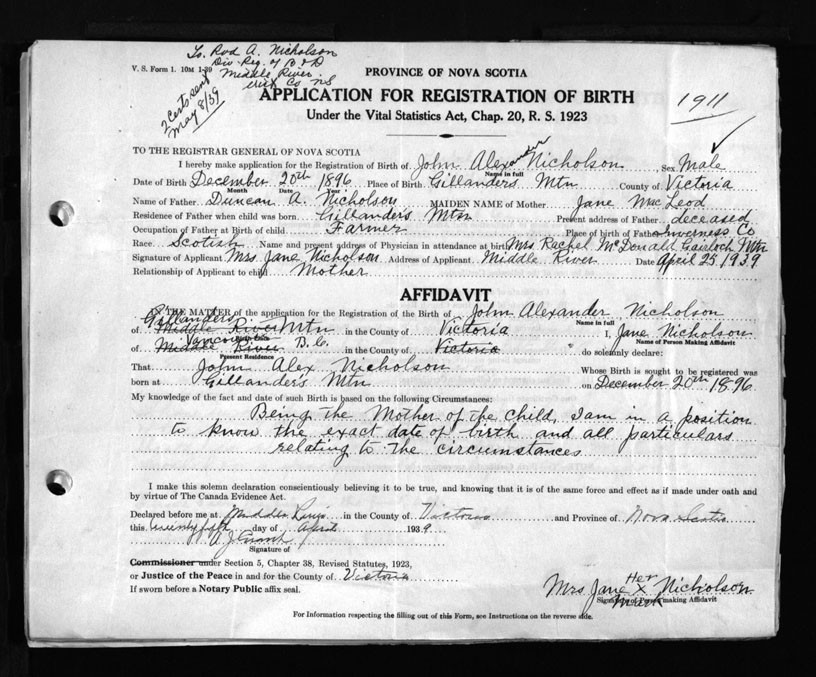 To Rod A. Nicholson
Div. Reg. of B & D
Middle River
Vict Co NS
V. S. Form 1. 10M 1-39
2 Certs sent
May 8/39
PROVINCE OF NOVA SCOTIA
APPLICATION FOR REGISTRATION OF BIRTH
1911
Under the Vital Statistics Act, Chap. 20, R. S. 1923
TO THE REGISTRAR GENERAL OF NOVA SCOTIA
I hereby make application for the Registration of Birth of John Alexander Nicholson Sex Male
Name in full
Date of Birth December 20th 1896 Place of Birth Gillanders Mtn County of Victoria
Month Date Year
Name of Father Duncan A. Nicholson MAIDEN NAME of Mother Jane MacLeod
Residence of Father when child was born Gillanders Mtn Present address of Father deceased
Occupation of Father at Birth of child Farmer Place of birth of Father Inverness Co
Race Scotish Name and present address of Physician in attendance at birth Mrs Rachel McDonald Gairloch Mtn
Signature of Applicant Mrs. Jane Nicholson Address of Applicant Middle River Date April 25, 1939
Relationship of Applicant to child Mother
AFFIDAVIT
IN THE MATTER of the application for the Registration of the Birth of John Alexander Nicholson
Name in full
Gillanders
of Middle River Mtn in the County of Victoria I, Jane Nicholson
Name of Person Making Affidavit
Vancouver
of Middle River B.C. in the County of Victoria do solemnly declare:
Present Residence
That John Alex Nicholson Whose Birth is sought to be registered was
born at Gillanders Mtn on December 20th 1896
My knowledge of the fact and date of such Birth is based on the following Circumstances:
Being the Mother of the child, I am in a position
to know the exact date of birth and all particulars
relating to the circumstances
I make this solemn declaration conscientiously believing it to be true, and knowing that it is of the same force and effect as if made under oath and
by virtue of The Canada Evidence Act.
Declared before me at Middle River in the County of Victoria and Province of Nova Scotia
this twenty fifth day of April 1939
Signature of
Commissioner under Section 5, Chapter 38, Revised Statutes, 1923,
or Justice of the Peace in and for the County of Victoria
If sworn before a Notary Public affix seal.
Her
Mrs. Jane X Nicholson
Signature of Person making Affidavit
Mark
For Information respecting the filling out of this Form, see Instructions on the reverse side.